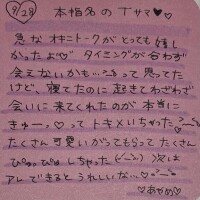 9/28
本指名のTサマ♥♡
急なオキニトークがとっても嬉し
かったよ♡ タイミングが合わず
会えないかも…?って思ってた
けど、寝てたのに起きてわざわざ
会いに来てくれたのが本当に
きゅーっ♡ってトキメいちゃった
たくさん可愛いがってもらってたくさん
しちゃった 次は
できるとうれしいな…
♡あやめ♡